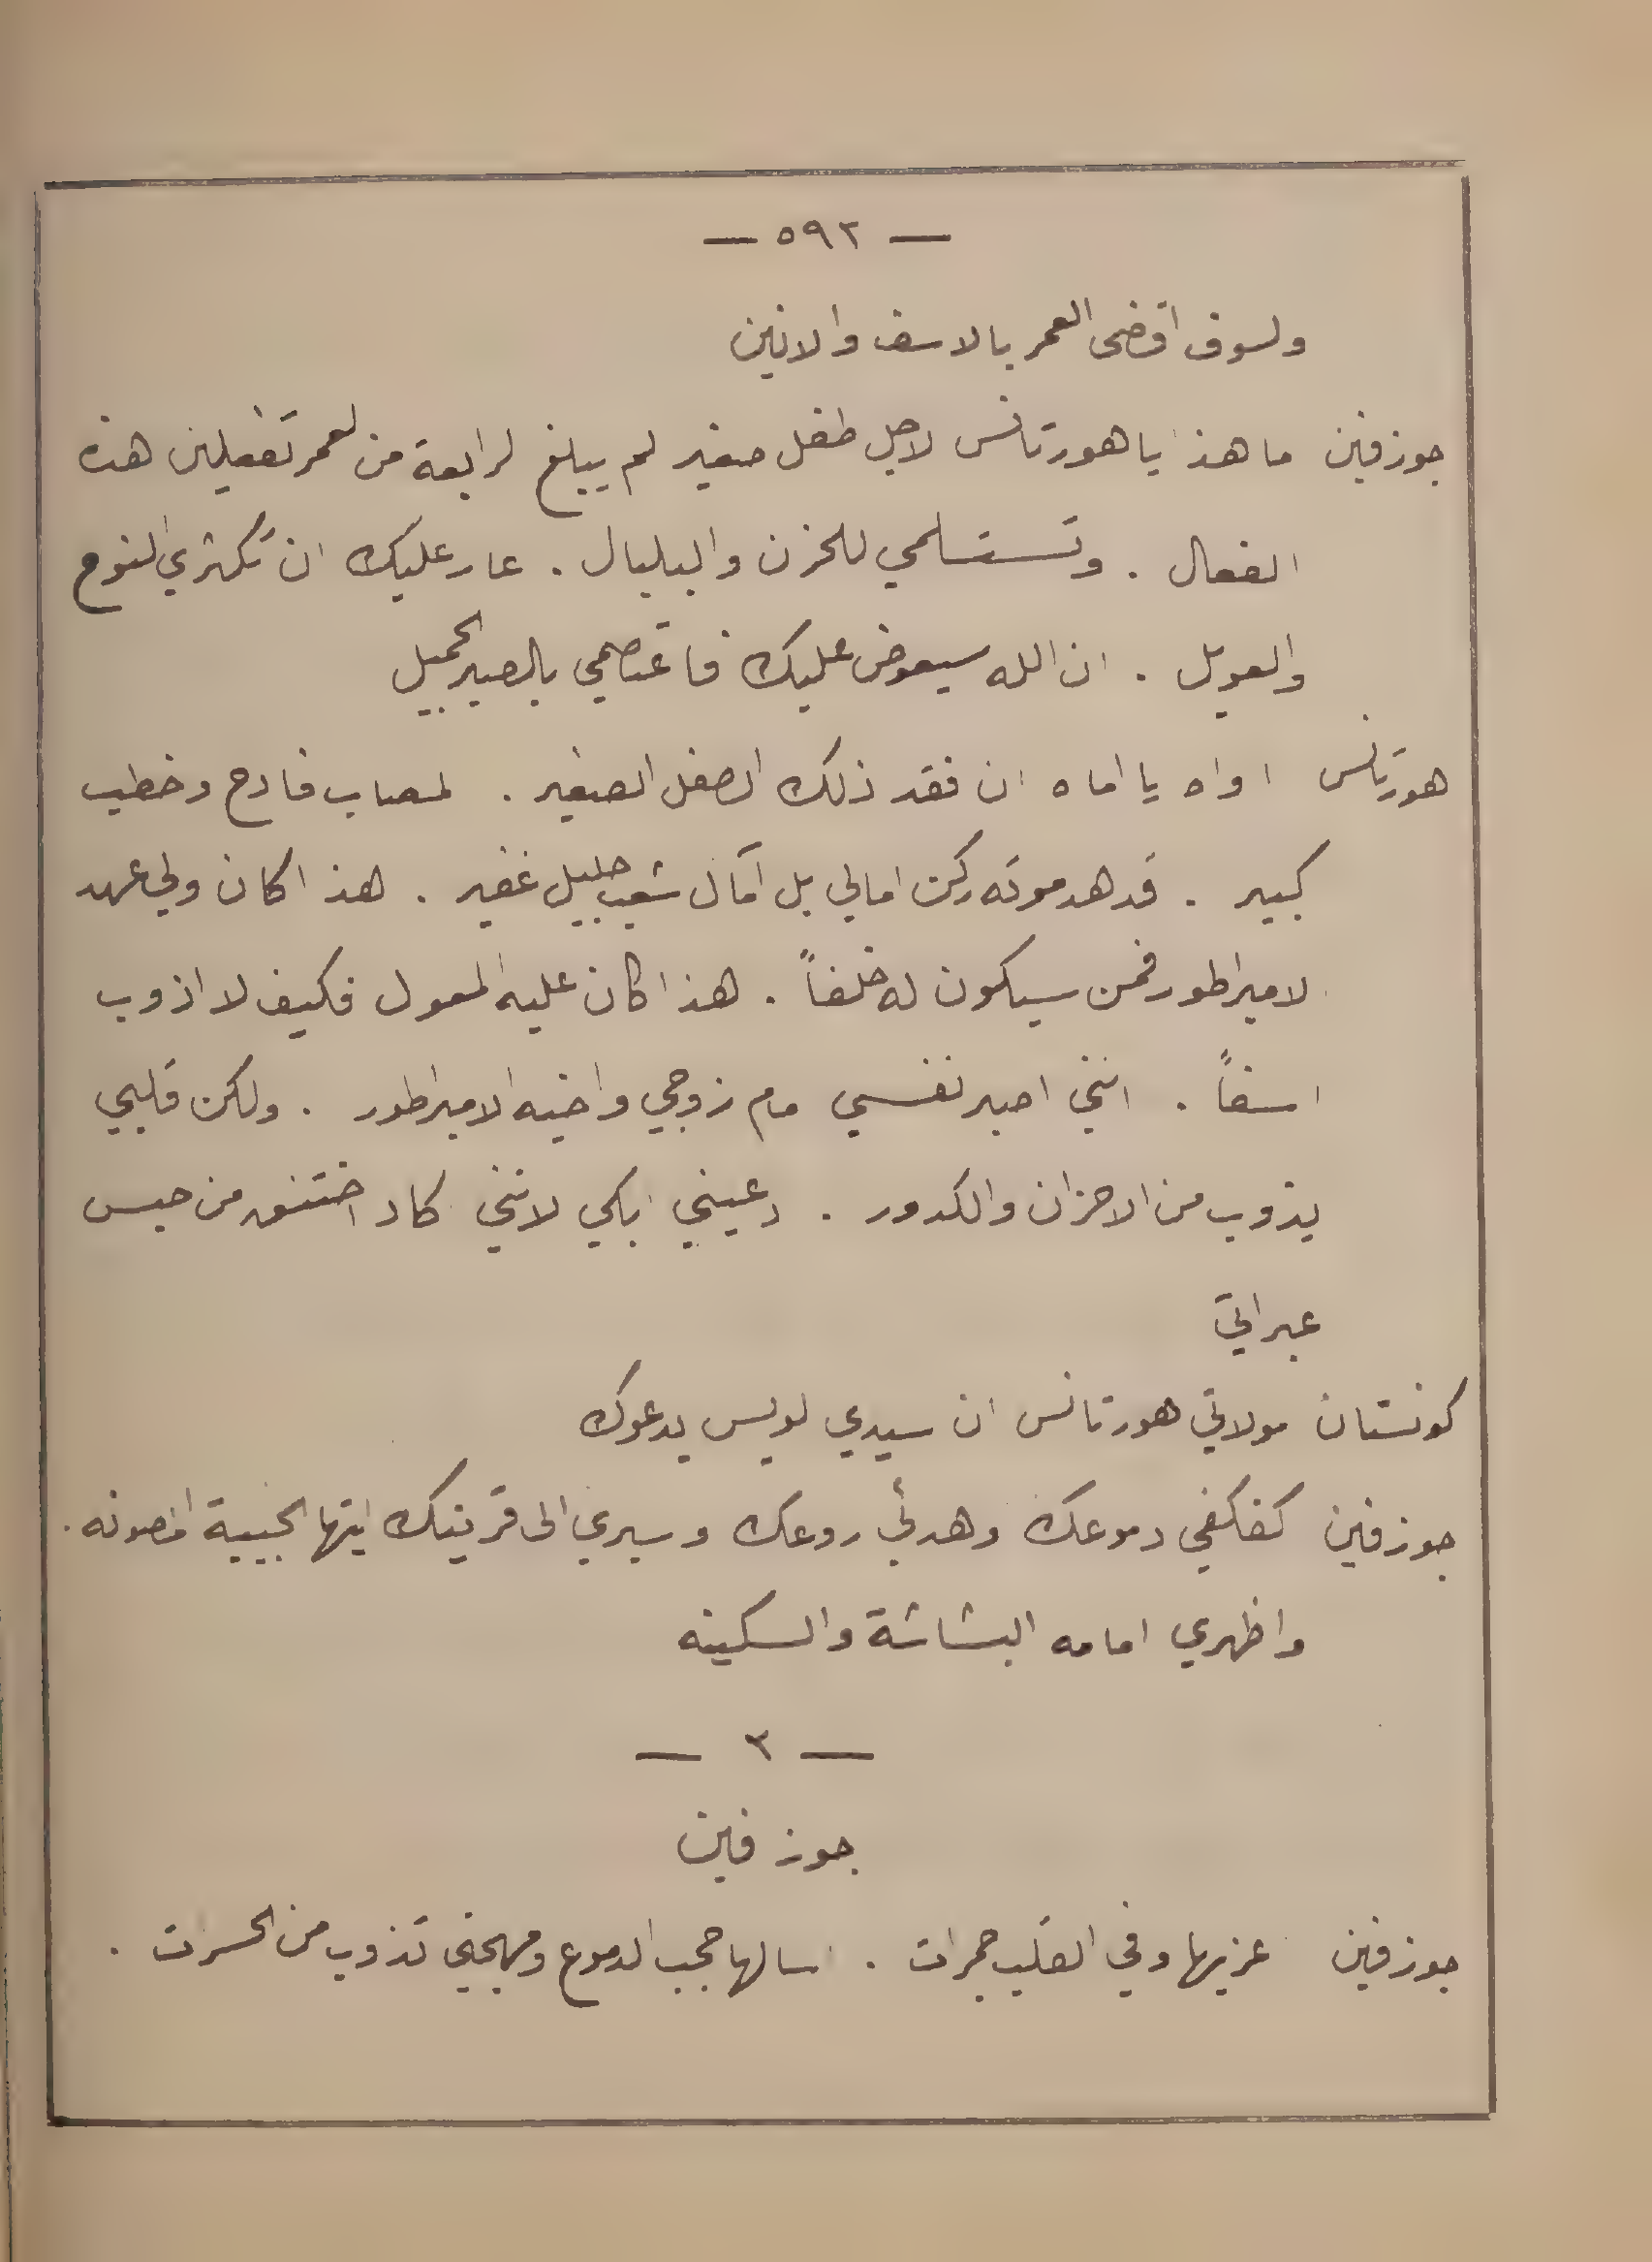 — ٥٩٢ —
ولسوف اقضى العمر بالاسف والانين
جوزفين ما هذا يا هورتانس لاجل طفل صغير لم يبلغ الرابعة من العمر تفعلين هذه
الفعال . وتستسلمي للحزن والبلبال . عار عليك ان تكثري النوح
والعويل . ان الله سيعوض عليك فاعتصمي بالصبر الجميل
هورتانس اواه يا اماه ان فقد ذلك الطفل الصغير . لمصاب فادح وخطب
كبير . قد هد موته ركن امالي بل آمال شعب جليل غفير . هذا كان ولي عهد
الامبراطور فمن سيكون له خلفاً . هذا كان عليه المعول فكيف لا اذوب
اسفاً . انني اصبر نفسي امام زوجي واخيه الامبراطور . ولكن قلبي
يذوب من الاحزان والكدور . دعيني ابكي لانني اكاد اختنق من حبس
عبراتي
كونستان مولاتي هورتانس ان سيدي لويس يدعوك
جوزفين كفكفي دموعك وهدئي روعك وسيري الى قرينك ايتها الحبيبة المصونه .
واظهري امامه البشاشة والسكينه
— ٢ —
جوزفين
جوزفين عزيها وفي القلب جمرات . اسالها حجب الدموع ومهجتي تذوب من الحسرات .